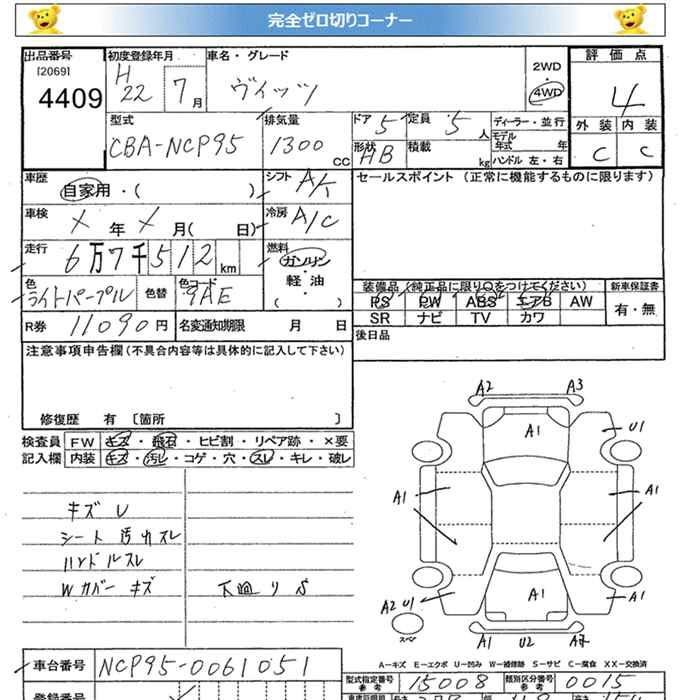 完全ゼロ切りコーナー
出品番号
[2069]
4409
初度登録年月
H
22
7 月
車名・グレード
ヴィッツ
2WD
・
4WD
評価点
4
外装 内装
C C
型式
CBA-NCP95
排気量
1300 CC
ドア 5
定員 5 人
形状 HB
積載 kg
ディーラー・並行
モデル年式 年
ハンドル 左・右
車歴
自家用・( )
シフト A/
セールスポイント (正常に機能するものに限ります)
車検
X 年 X 月( 日)
冷房 A/C
走行
6万7千512 km
燃料
ガソリン
・
軽油
( )
色
ライトパープル
色替
色コード
9AE
装備品 (純正品に限り○をつけてください)
新車保証書
PS PW ABS エアB AW
SR ナビ TV カワ
有・無
R券 11090 円
名変通知期限 月 日
後日品
注意事項申告欄(不具合内容等は具体的に記入して下さい)
修復歴 有 〔箇所 〕
検査員
記入欄
FW キズ・飛石・ヒビ割・リペア跡・×要
内装 キズ・汚レ・コゲ・穴・スレ・キレ・破レ
キズ U
シート 汚れスレ
ハンドルスレ
Wカバー キズ
下廻り S
A2
A3
A1
U1
A1
A1
A2 U1
A1
A1
スペア
A1 U2
A-キズ E-エクボ U-凹み W-補修跡 S-サビ C-腐食 XX-交換済
車台番号
NCP95-0061051
型式指定番号
参考
15008
類別区分番号
参考
0015
登録番号